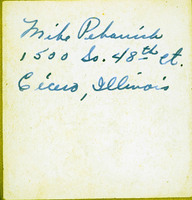 Mike Pekarich
1500 So. 48th Ct.
Cicero, Illinois